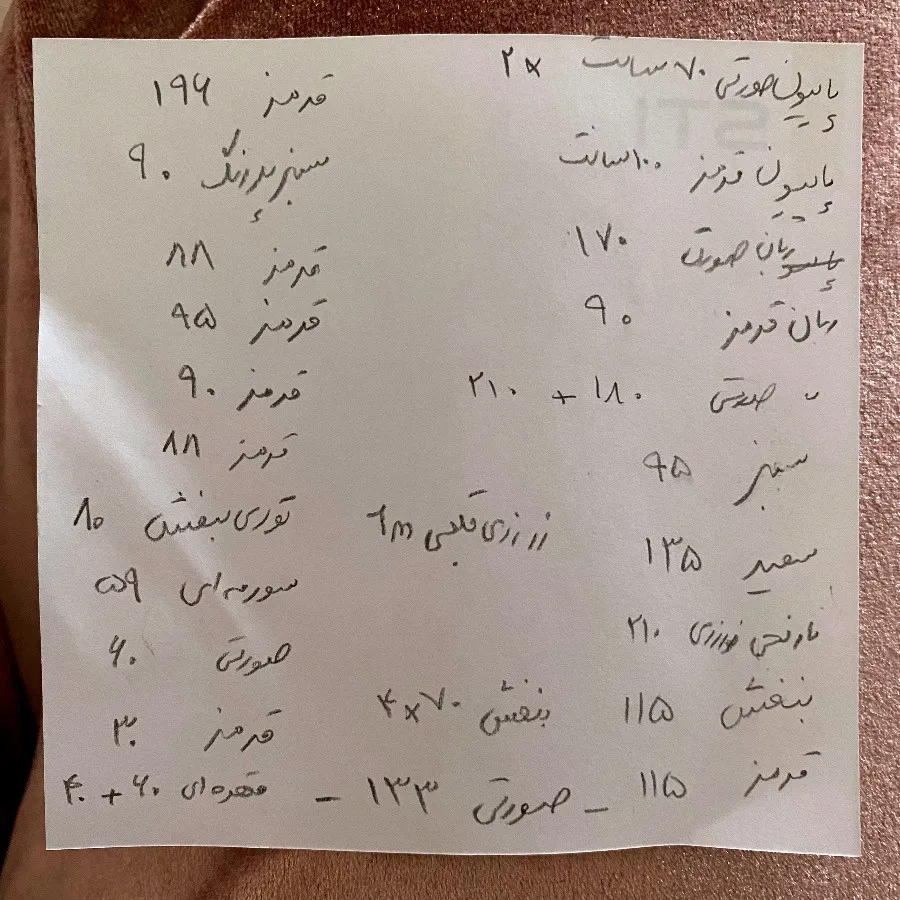 پاپیون صورتی ۷۰ سانت ۲×
پاپیون قرمز ۱۰۰ سانت
ربان صورتی ۱۷۰
ربان قرمز ۹۰
〃 صورتی ۱۸۰ + ۲۱۰
سبز ۹۵
سفید ۱۳۵
نارنجی زرزری ۲۱۰
بنفش ۱۱۵ بنفش ۷۰×۴
قرمز ۱۱۵ – صورتی ۱۳۳ – قهوه‌ای ۶۰ + ۴۰
زرزری قلبی
قرمز ۱۹۶
سبز پررنگ ۹۰
قرمز ۸۸
قرمز ۹۵
قرمز ۹۰
قرمز ۸۸
توری بنفش ۸۰
سورمه‌ای ۵۹
صورتی ۶۰
قرمز ۳۰